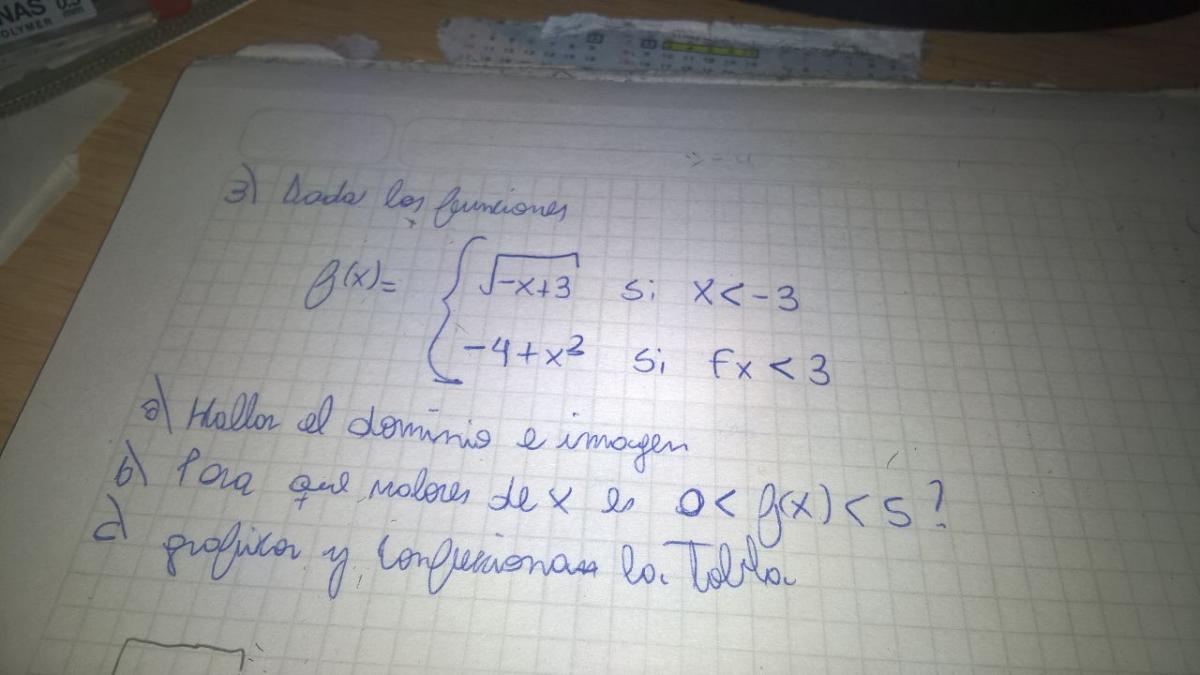 NAS 0.5
mm
OLYMER
3) Dada las funciones
f(x)= √-x+3 si x<-3
-4+x² si fx<3
a) Hallar el dominio e imagen
b) Para que valores de x es 0<f(x)<5?
c) graficar y confeccionar la Tabla